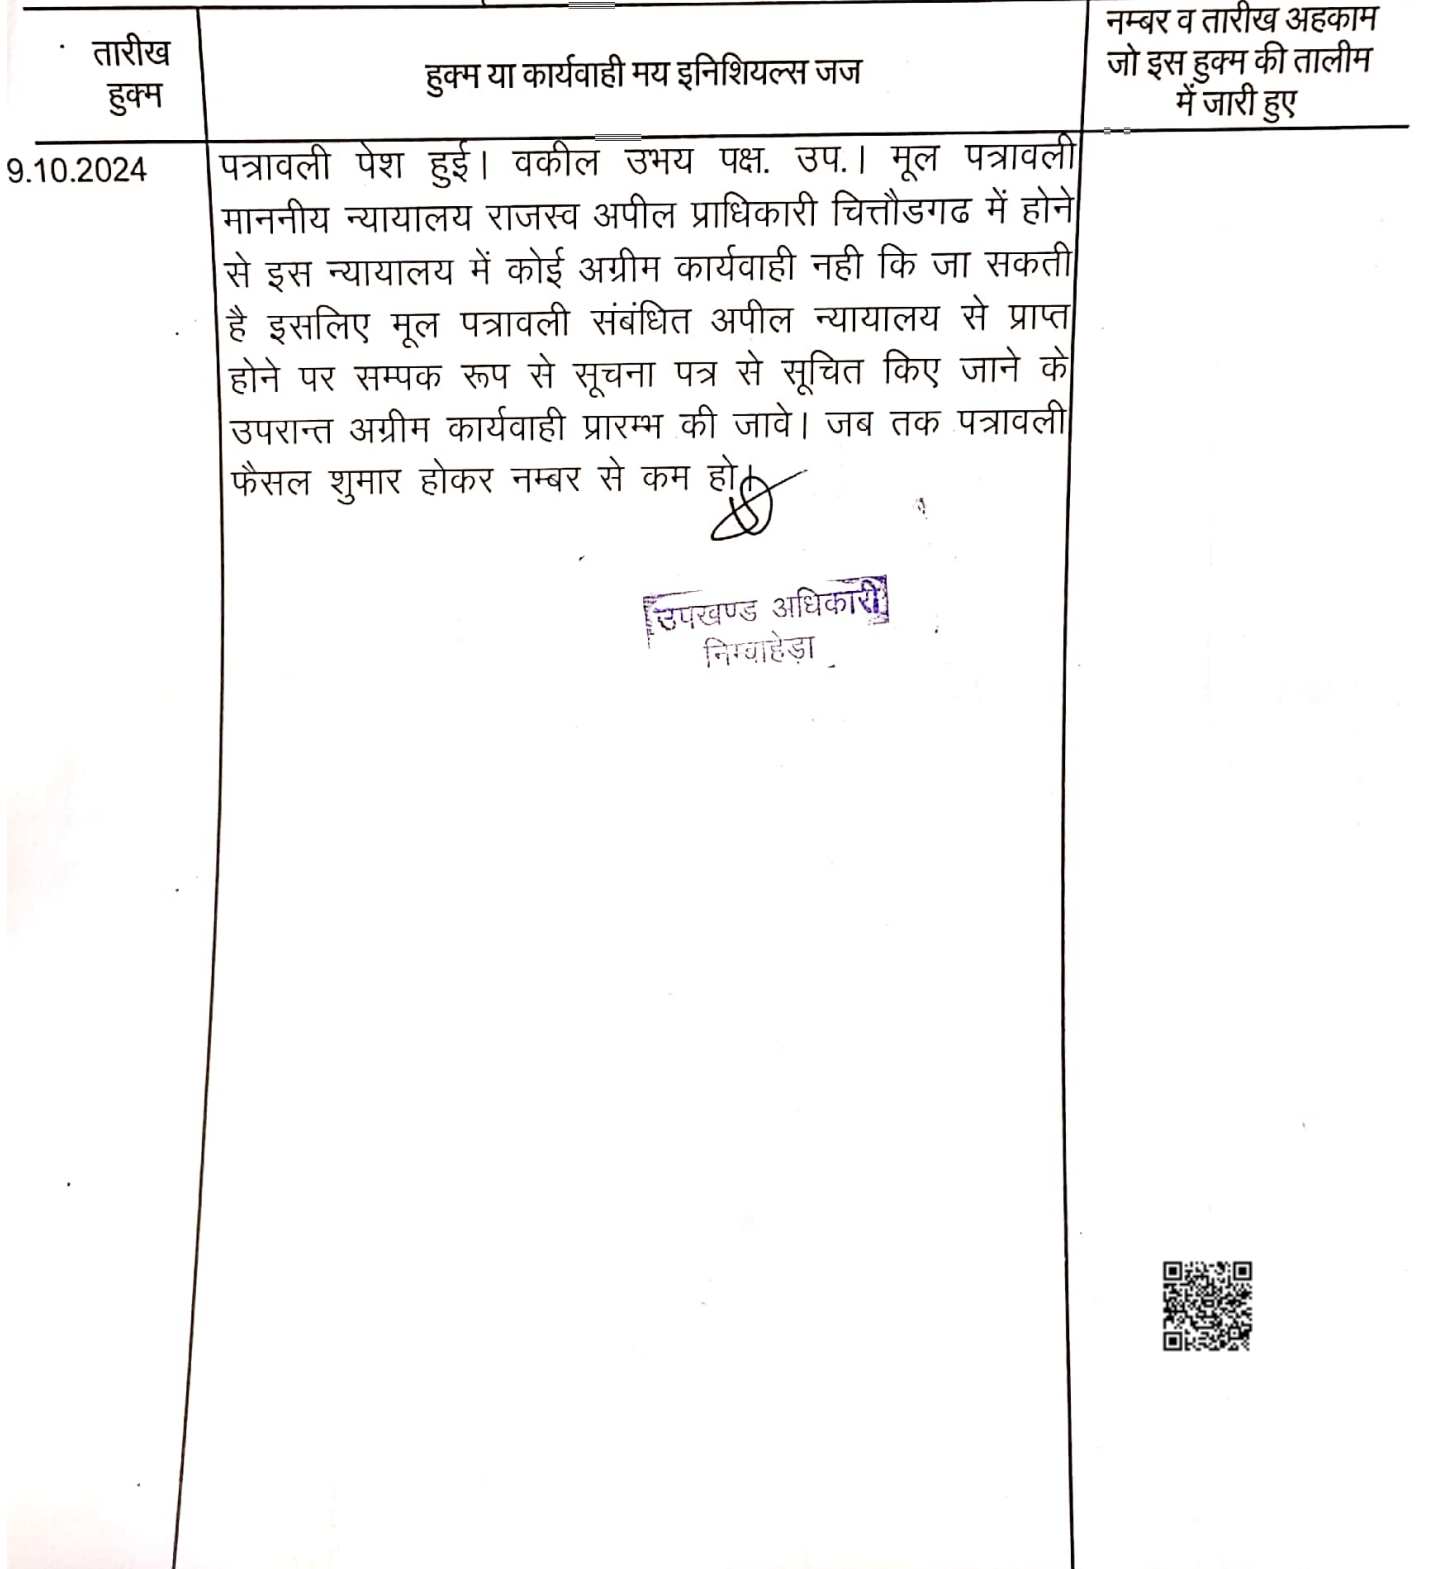 तारीख
हुक्म
हुक्म या कार्यवाही मय इनिशियल्स जज
नम्बर व तारीख अहकाम
जो इस हुक्म की तालीम
में जारी हुए
9.10.2024
पत्रावली पेश हुई। वकील उभय पक्ष. उप.। मूल पत्रावली
माननीय न्यायालय राजस्व अपील प्राधिकारी चित्तौडगढ में होने
से इस न्यायालय में कोई अग्रीम कार्यवाही नही कि जा सकती
है इसलिए मूल पत्रावली संबंधित अपील न्यायालय से प्राप्त
होने पर सम्पक रूप से सूचना पत्र से सूचित किए जाने के
उपरान्त अग्रीम कार्यवाही प्रारम्भ की जावे। जब तक पत्रावली
फैसल शुमार होकर नम्बर से कम हो।
उपखण्ड अधिकारी
निम्बाहेड़ा